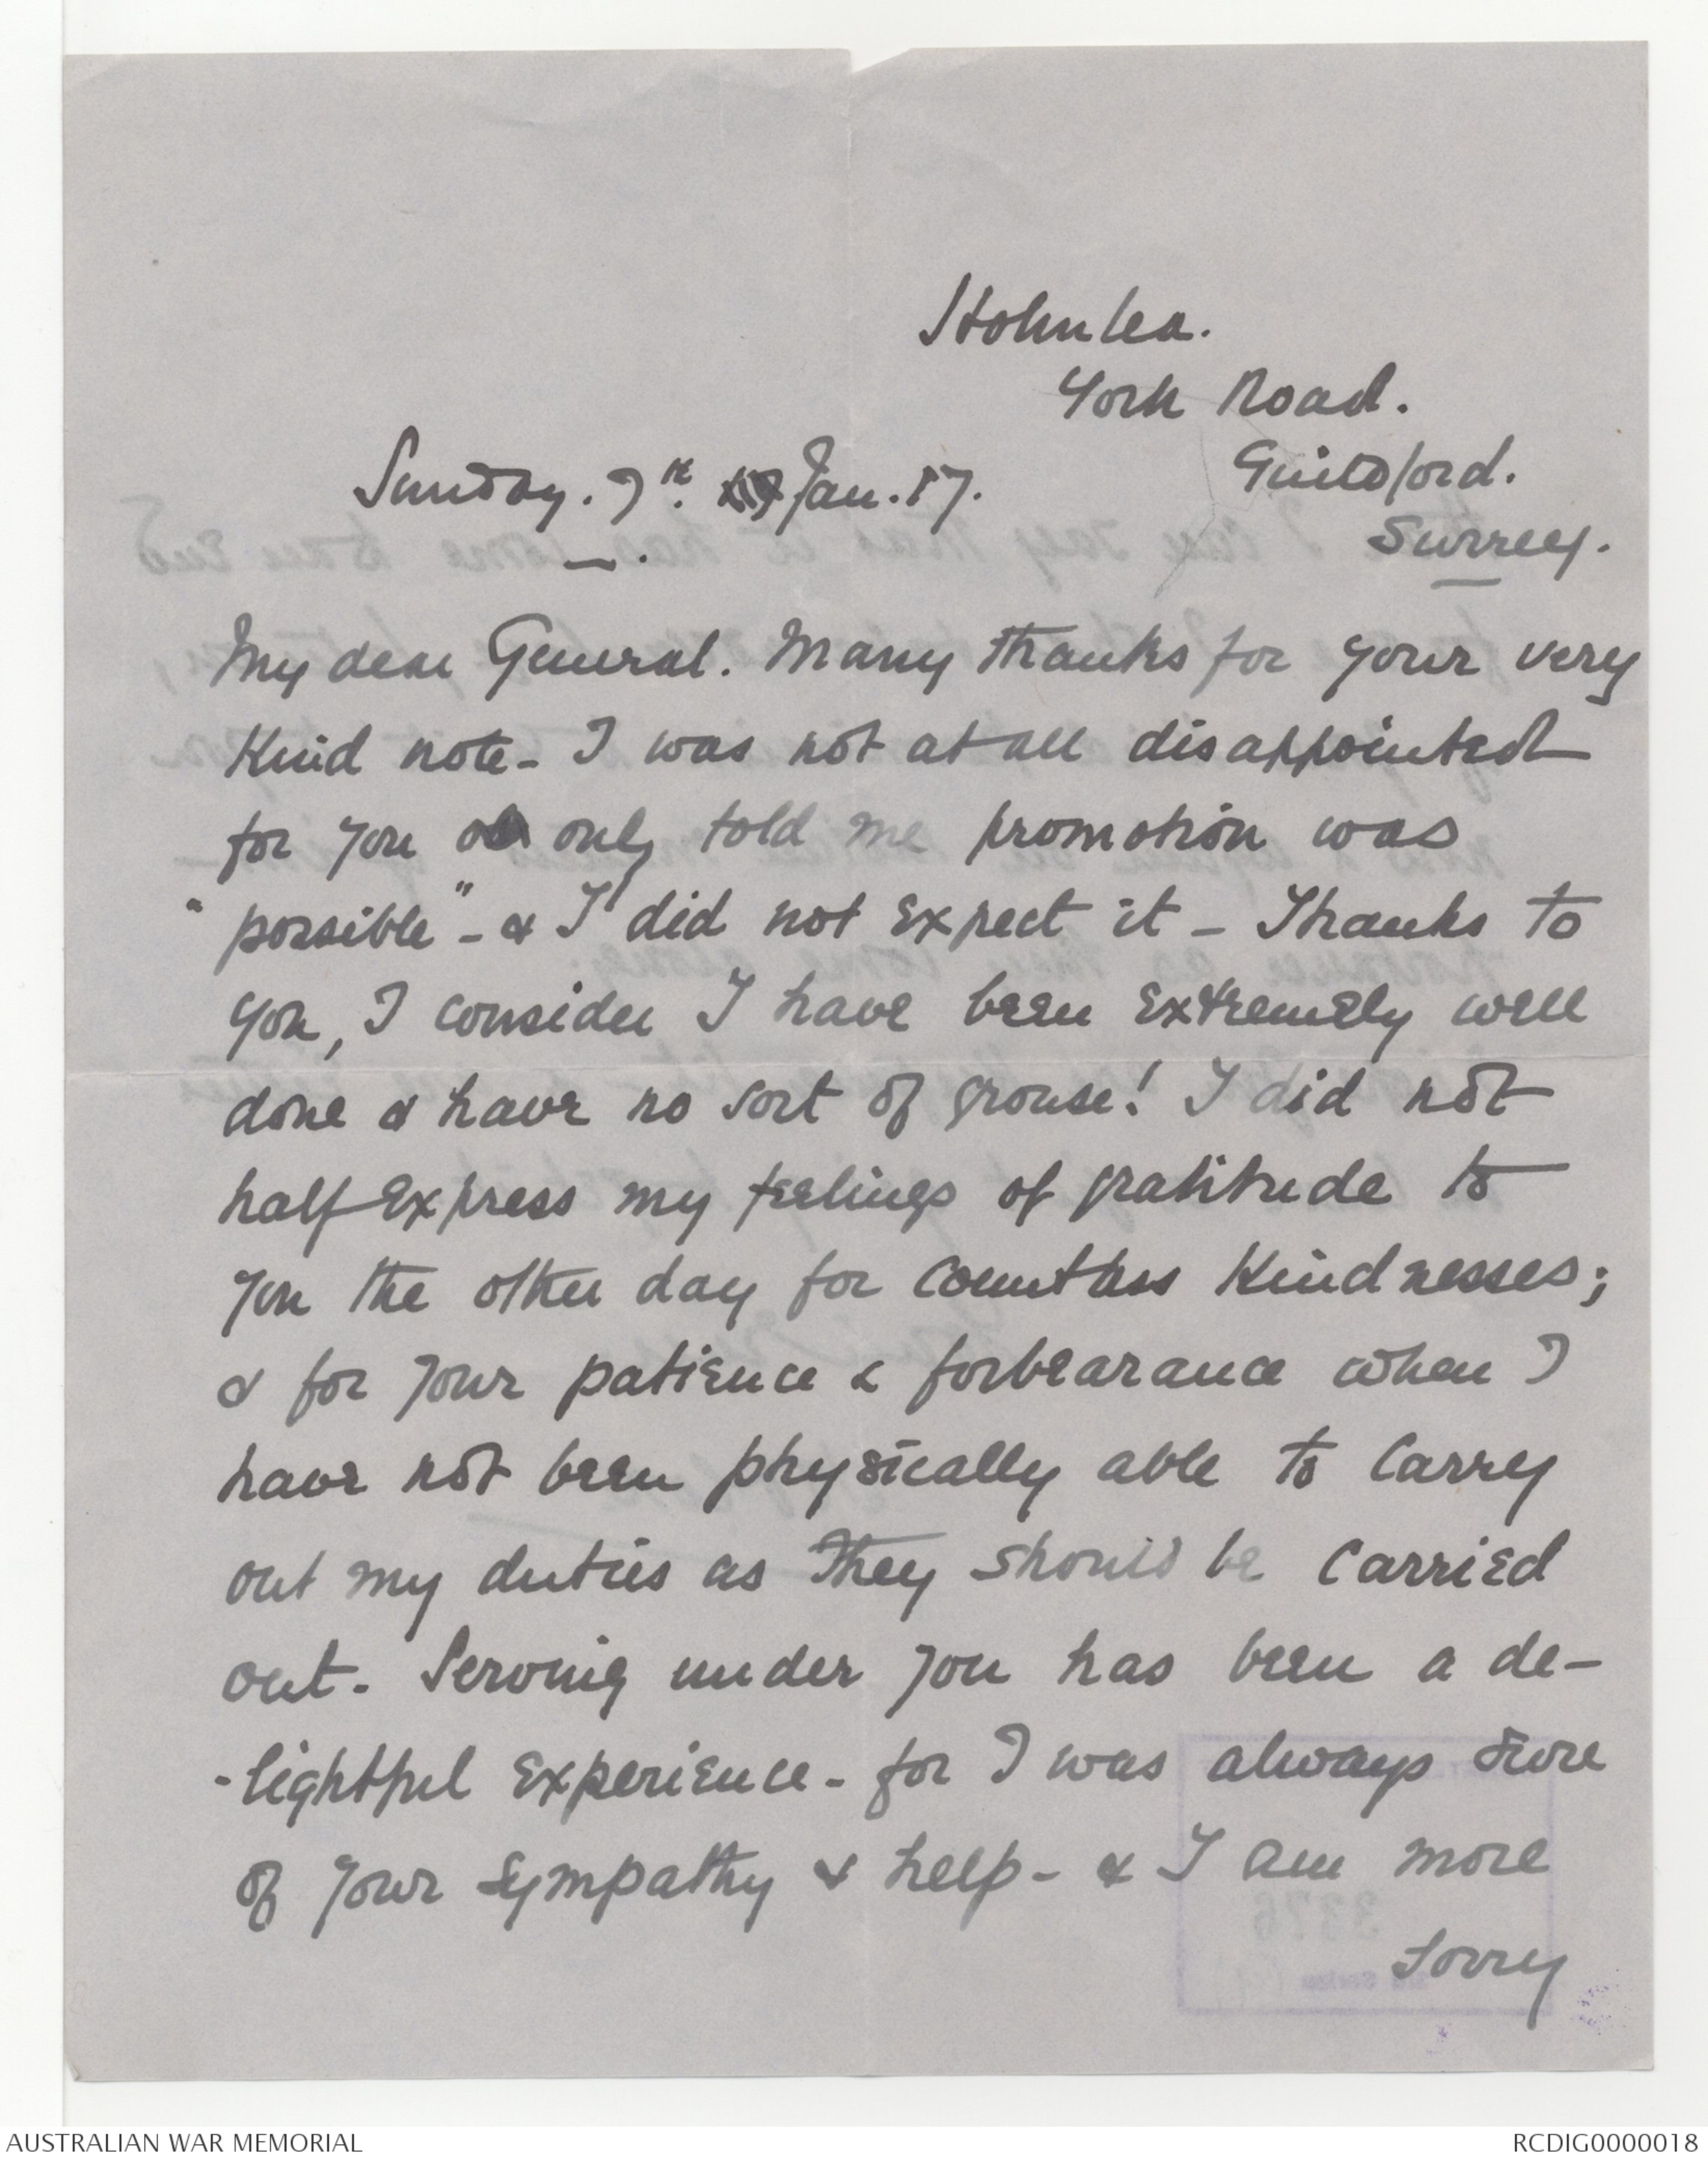 York Road.
Guildford.
Surrey.
Sunday. 7th. Jan. 17.
My dear General. Many thanks for your very
Kind note - I was not at all disappointed
for you only told me promotion was
"possible" - & I did not expect it - Thanks to
you, I consider I have been extremely well
done & have no sort of grouse! I did not
half express my feelings of gratitude to
you the other day for countless kindnesses;
& for your patience & forbearance when I
have not been physically able to carry
out my duties as they should be carried
out. Serving under you has been a de-
-lightful experience - for I was always sure
of your sympathy & help - & I am more
sorry
3376
AUSTRALIAN WAR MEMORIAL
RCDIG0000018